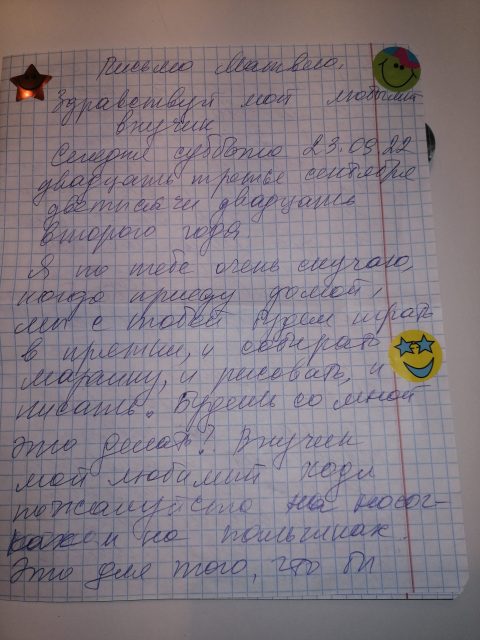 Письмо Матвею.
Здравствуй мой любимий
внучик
Сегодня суббота 23.09.22
двадцать третье сентября
две тисячи двадцать
второго года.
Я по тебе очень скучаю,
когда приеду домой,
ми с тобой будем играть
в прятки, и собирать
марашку, и рисовать, и
писать. Будешь со мной
это делать? Внучек
мой любимий ходи
пожалуйста на носоч-
ках и на пальчиках.
Это для того, что би